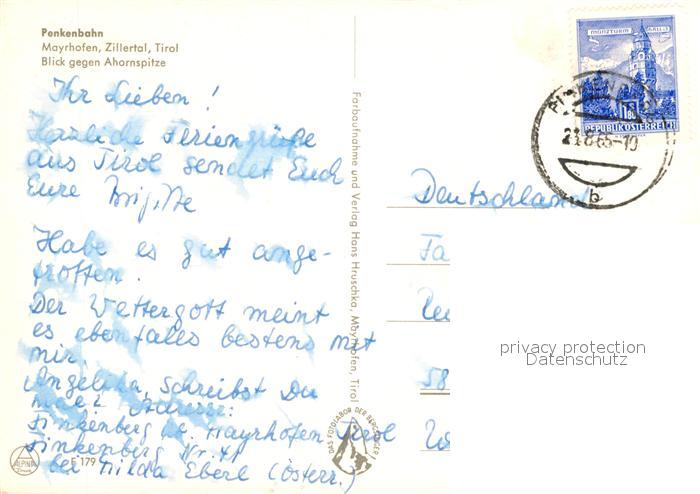 Penkenbahn
Mayrhofen, Zillertal, Tirol
Blick gegen Ahornspitze
Ihr Lieben!
Herzliche Feriengrüße
aus Tirol sendet Euch
Eure Brigitte
Habe es gut ange-
troffen.
Der Wettergott meint
es ebenfalls bestens mit
mir.
Angelika, schreibst Du
mal? Adresse:
Finkenberg b. Mayrhofen Tirol
Finkenberg Nr. 41
bei Hilda Eberl (Österr.)
ALPINA
F 179
Farbaufnahme und Verlag Hans Hruschka, Mayrhofen, Tirol
DAS FOTOLABOR DER BERGSTEIGER
MÜNZTURM HALL i. T.
1.80
REPUBLIK ÖSTERREICH
65-10
b
Deutschland
Fa
58
privacy protection
Datenschutz